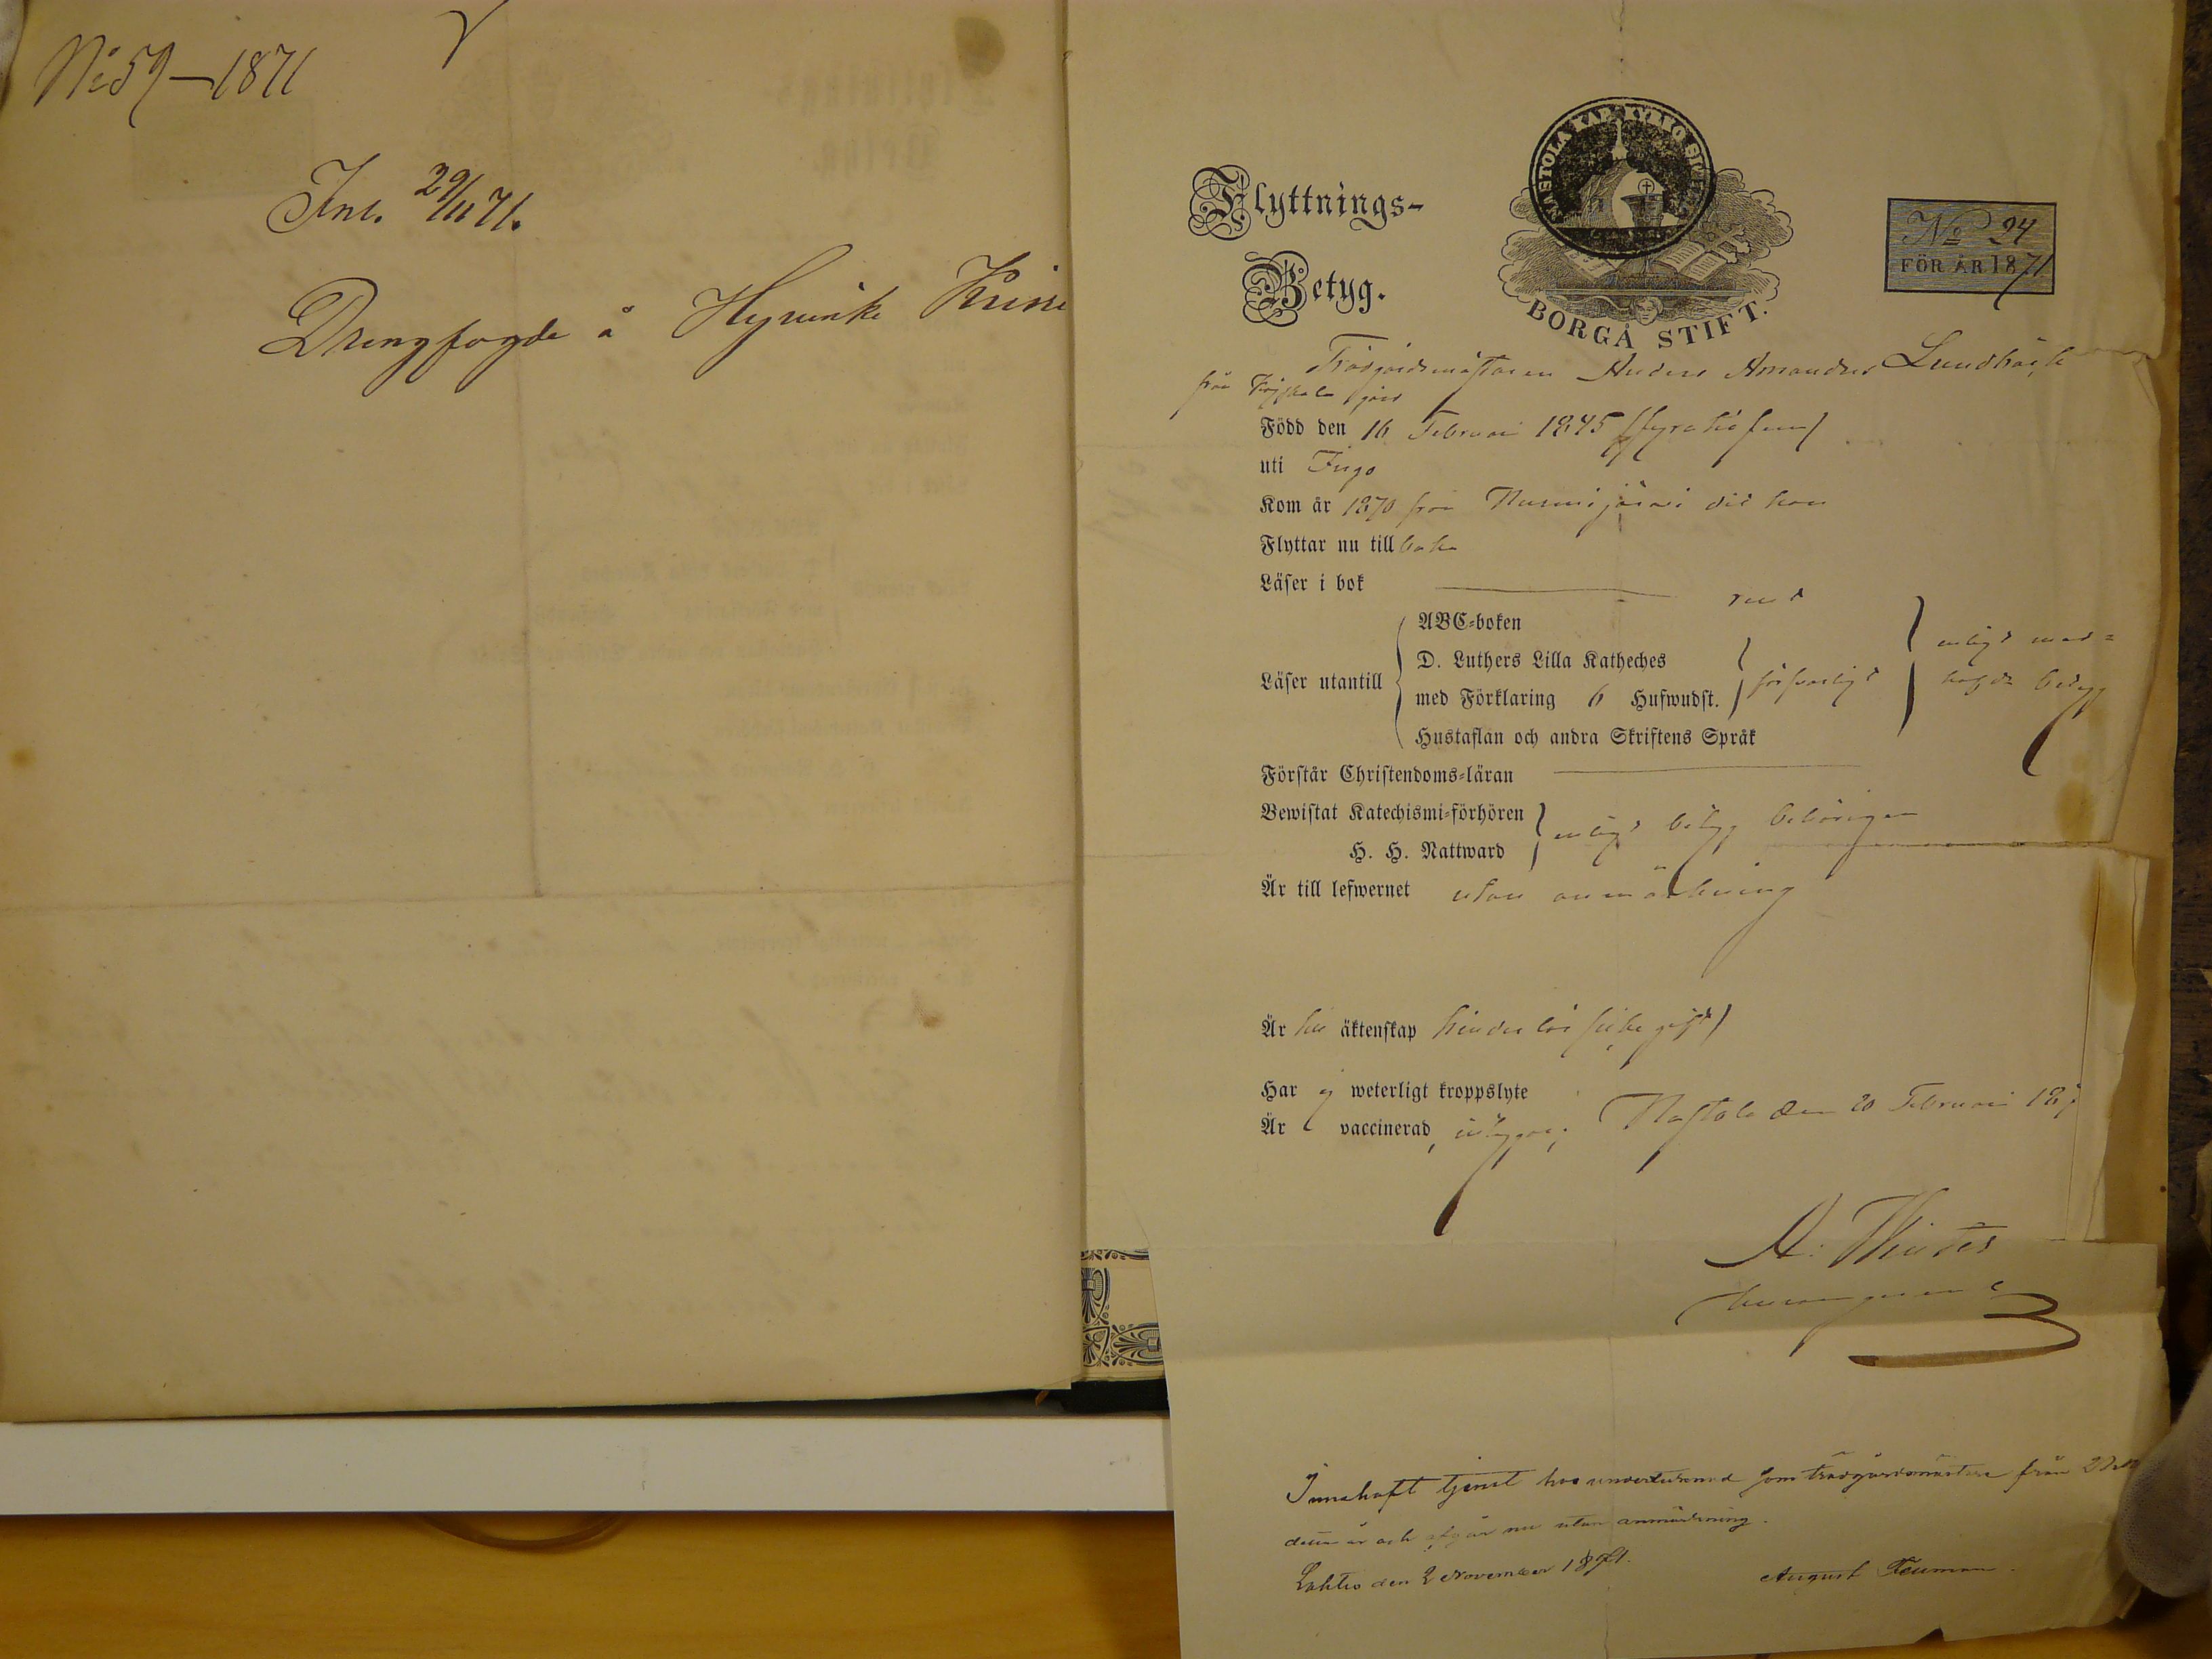 No 59-1871
Inl. 29/11 71.
Drengfogde å Hyvinke
NASTOLA KAP. KYRKO
Flyttnings-
Betyg.
BORGÅ STIFT.
No 24
FÖR ÅR 1871
Trädgårdsmästaren Anders Amandus Lundbäck
från gård
Född den 16 Februari 1845 (fyratiofem)
uti Ingo
Kom år 1870 från Nurmijärvi dit han
Flyttar nu tillbaka
Läser i bok rent
ABC-boken
D. Luthers Lilla Katheches
Läser utantill
med Förklaring 6 Hufwudst. försvarligt
enligt med-
hafda betyg
Hustaflan och andra Skriftens Språk
Förstår Christendoms-läran
Bewistat Katechismi-förhören
H. H. Nattward
enligt betyg behörigen
Är till lefwernet utan anmärkning
Är till äktenskap hinderlös
Har ej weterligt kroppslyte
Är vaccinerad, intygar;
Nastola den 20 Februari 187
A.
Innehaft tjenst hos undertecknad som trädgårdsmästare från
detta år och afgår nu utan anmärkning.
Lahtis den 2 November 1871.
August